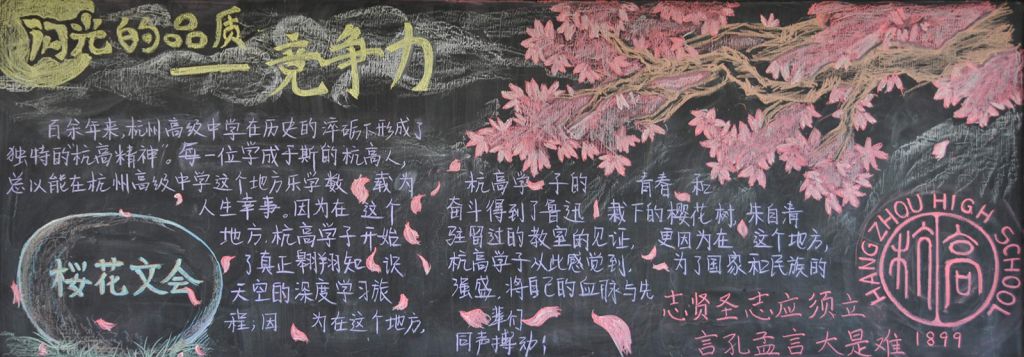 闪光的品质
—竞争力
百余年来,杭州高级中学在历史的淬砺下形成了
独特的“杭高精神”。每一位学成于斯的杭高人,
总以能在杭州高级中学这个地方乐学数载为
人生幸事。因为在这个
地方,杭高学子开始
了真正翱翔知识
天空的深度学习旅
程;因为在这个地方,
樱花文会
杭高学子的 有青 和
奋斗得到了鲁迅栽下的樱花树,朱自清
驻留过的教室的见证,更因为在这个地方,
杭高学子以此感觉到,为了国家和民族的
强盛,将自己的血脉与先
辈们
同声搏动!
志贤圣志应须立
言孔孟言大是难
HANG ZHOU HIGH SCHOOL
杭高
1899